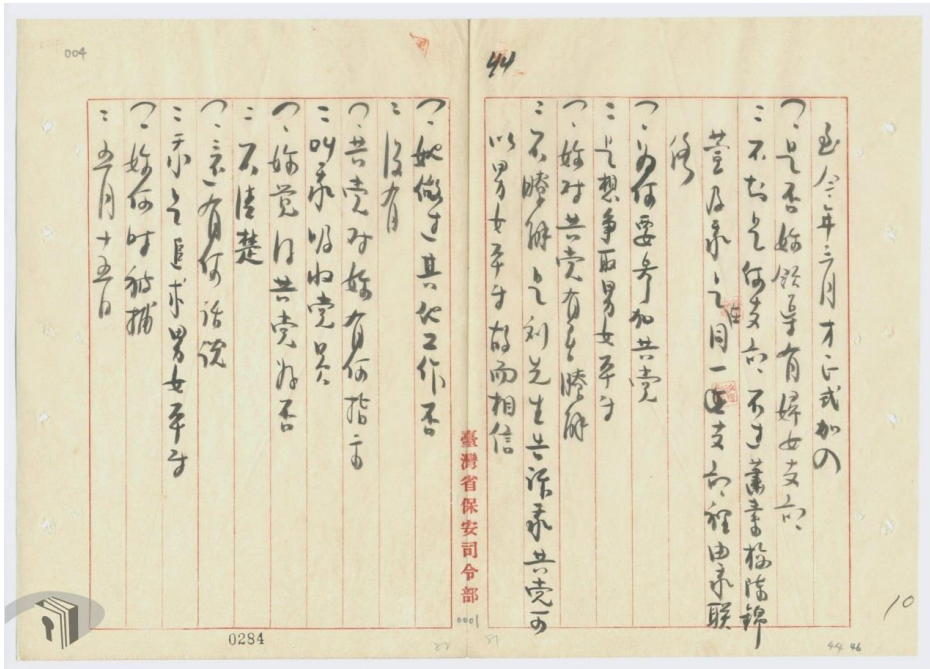 44
至今年三月才正式加入
問、是否妳領導有婦女支部
答、不知是何支部、不过蕭素梅陳錦
萱及我是在同一支部、經由我联
絡
問、为何要參加共党
答、是想争取男女平等
問、妳对共党有無瞭解
答、不瞭解是刘先生告訴我共党可
以男女平等故而相信
臺灣省保安司令部
0001
10
44 46
004
問、妳做过其他工作否
答、沒有
問、共党对妳有何指示
答、叫我吸收党員
問、妳覺得共党好否
答、不清楚
問、還有何話說
答、我是追求男女平等
問、妳何时被捕
答、五月十五日
0284